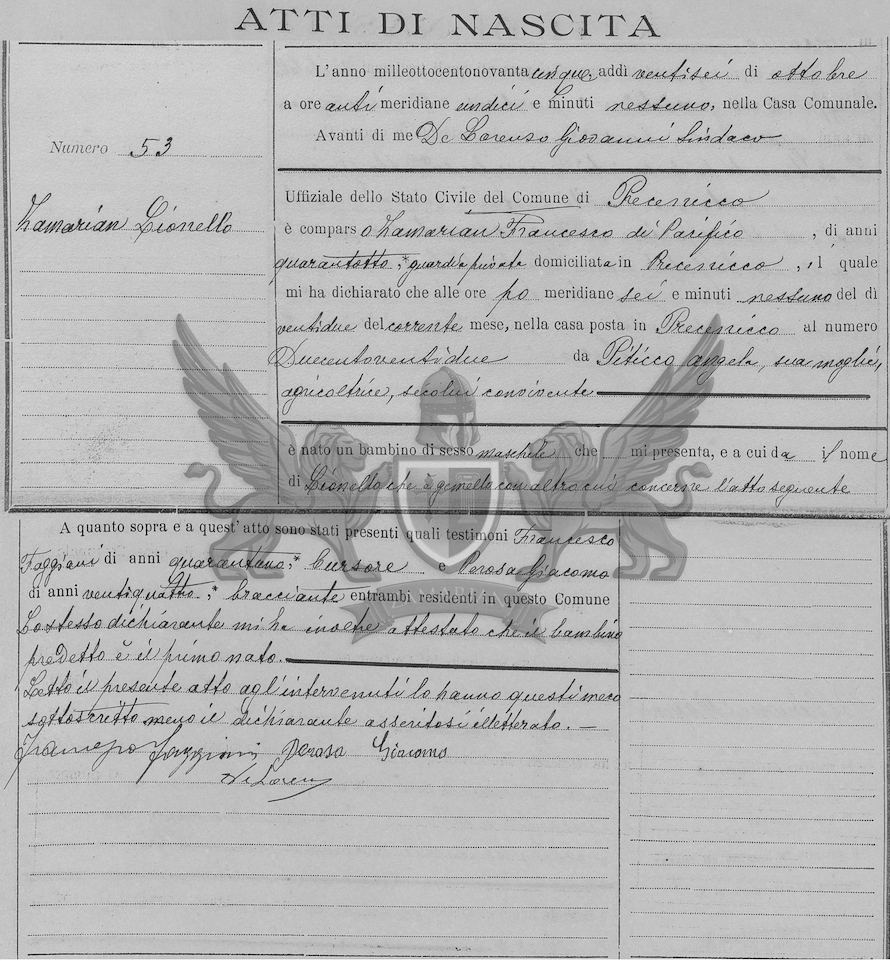 ATTI DI NASCITA
Numero 53
Zamarian Lionello
L'anno milleottocentonovantacinque, addì ventisei di ottobre
a ore anti meridiane undici e minuti nessuno, nella Casa Comunale.
Avanti di me De Lorenzo Giovanni Sindaco
Uffiziale dello Stato Civile del Comune di Precenicco
è comparso Zamarian Francesco di Pacifico, di anni
quarantotto, guardia privata domiciliata in Precenicco, il quale
mi ha dichiarato che alle ore po meridiane sei e minuti nessuno del dì
ventidue del corrente mese, nella casa posta in Precenicco al numero
Duecentoventidue da Piticco Angela, sua moglie,
agricoltrice, secolui convivente
è nato un bambino di sesso maschile che mi presenta, e a cui da il nome
di Lionello che è gemello con altro cui concerne l'atto seguente
A quanto sopra e a quest'atto sono stati presenti quali testimoni Francesco
Faggiani di anni quarantuno, Cursore e Perosa Giacomo
di anni ventiquattro, bracciante entrambi residenti in questo Comune
Lo stesso dichiarante mi ha inoltre attestato che il bambino
predetto è il primo nato.
Letto il presente atto agl'intervenuti lo hanno questi meco
sottoscritto meno il dichiarante asseritosi illetterato. —
Francesco Faggiani Perosa Giacomo
De Lorenzo